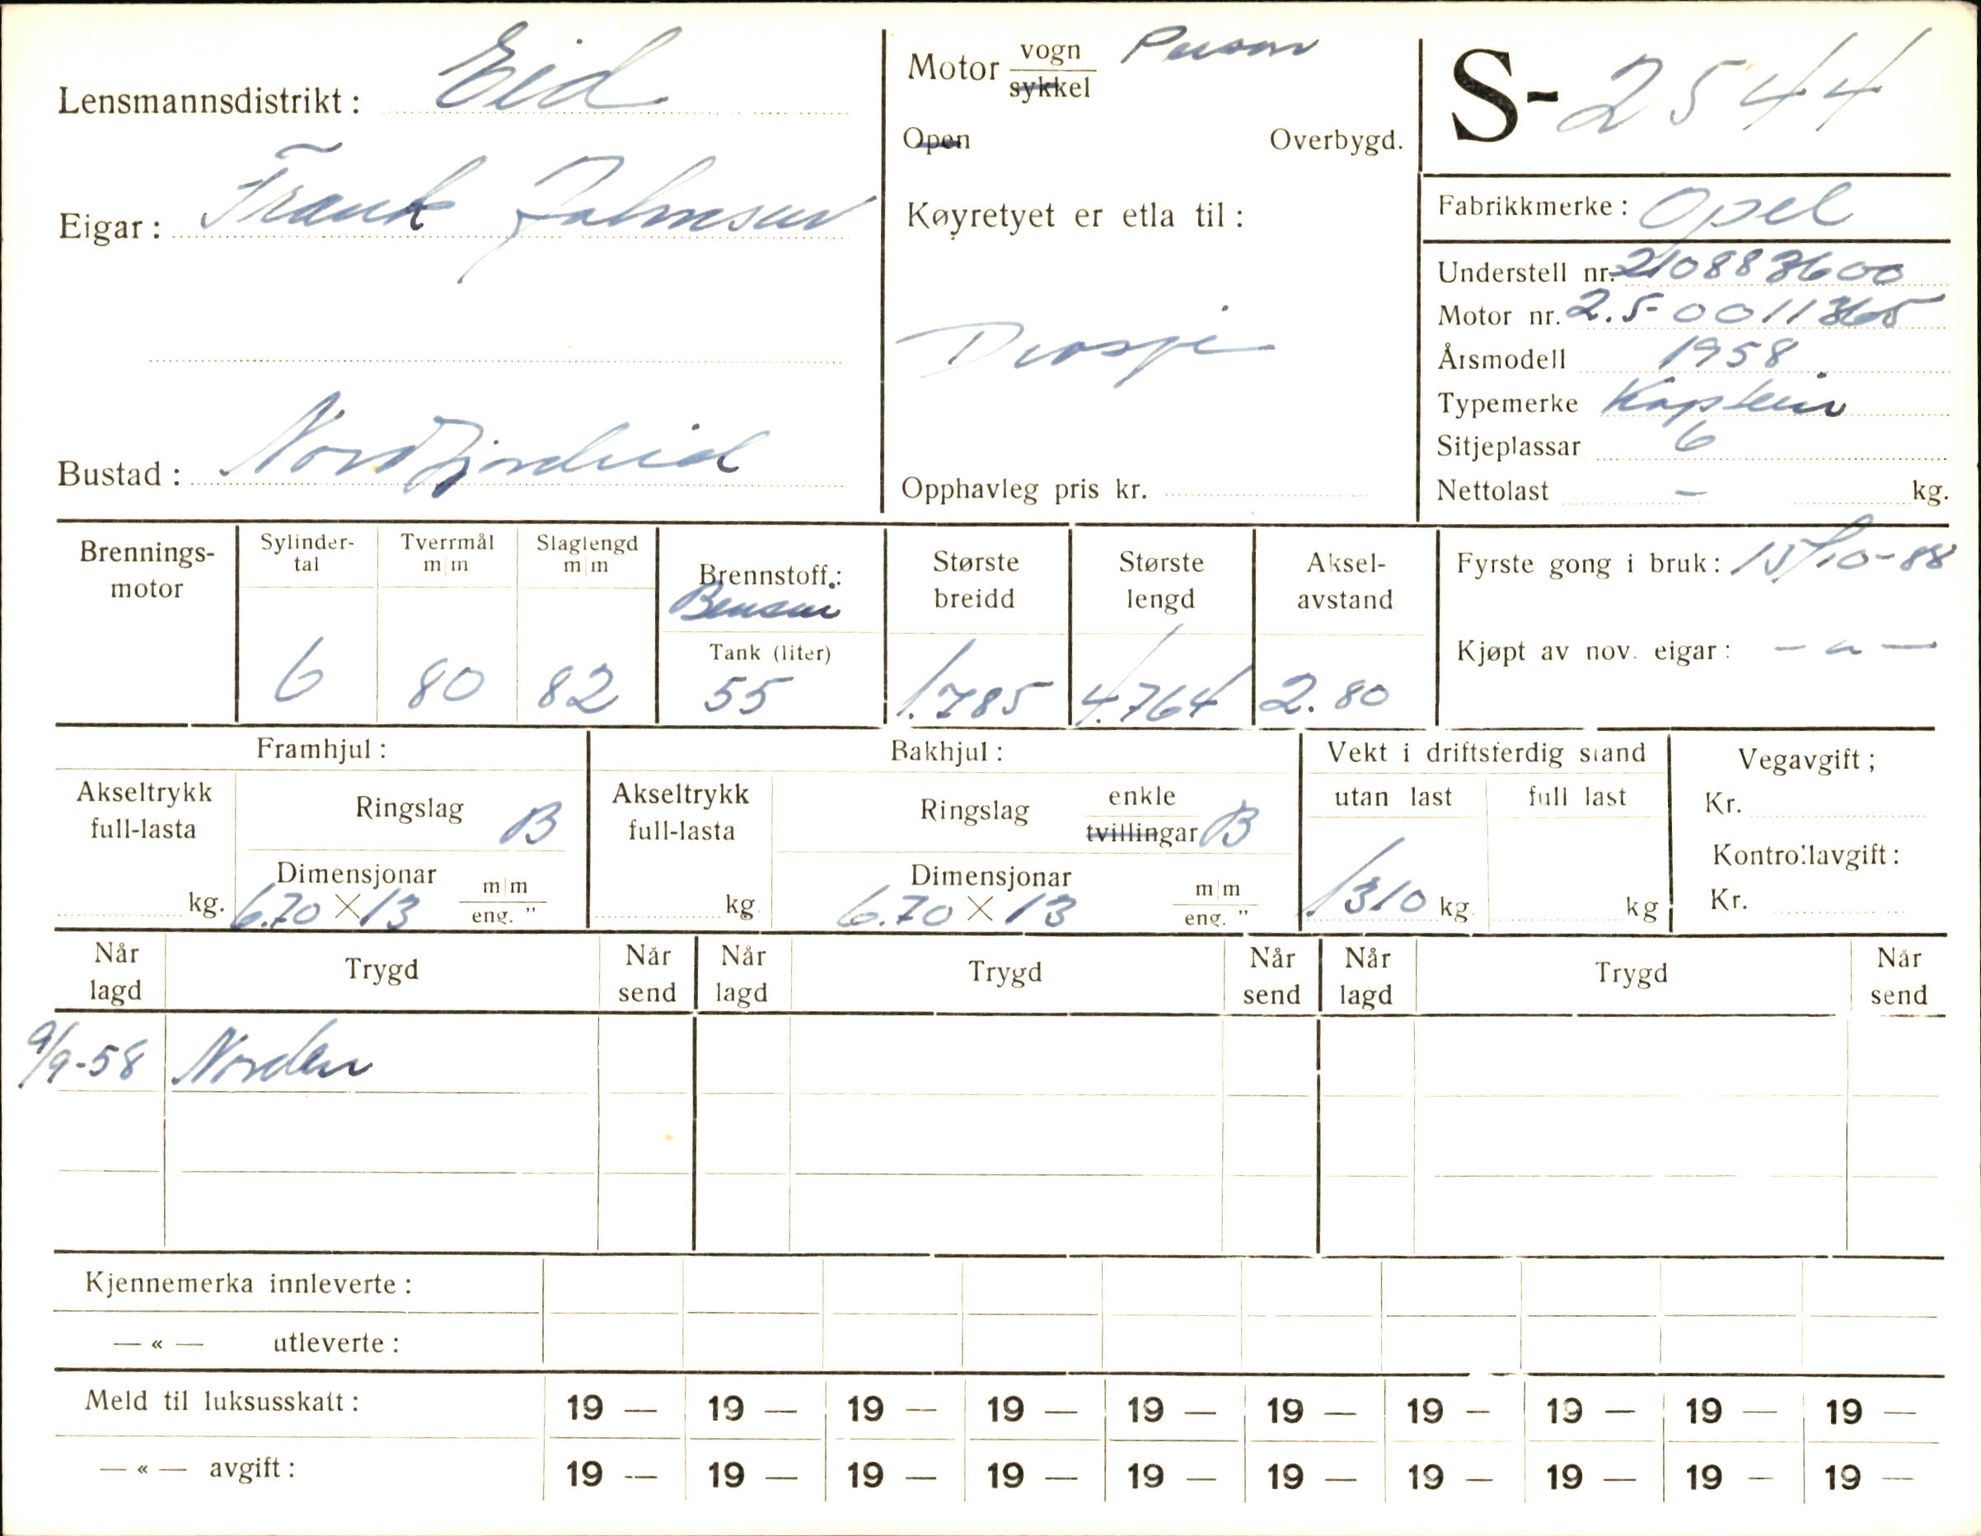 Lensmannsdistrikt: Eid
Motor vogn Person
sykkel
S- 2544
Open Overbygd.
Eigar: Frank
Køyretyet er etla til:
Fabrikkmerke: Opel
Understell nr. 210883600
Motor nr. 2.5-0011365
Drosje
Årsmodell 1958
Typemerke Kaptein
Sitjeplassar 6
Bustad: Nordfjordeid
Opphavleg pris kr.
Nettolast — kg.
Brennings-
motor
Sylinder-
tal
6
Tverrmål
m|m
80
Slaglengd
m|m
82
Brennstoff.:
Bensin
Tank (liter)
55
Største
breidd
1.785
Største
lengd
4.764
Aksel-
avstand
2.80
Fyrste gong i bruk: 15/10-58
Kjøpt av nov. eigar: — " —
Framhjul:
Akseltrykk
full-lasta
kg.
Ringslag B
Dimensjonar
6.70 X 13
m|m
eng. "
Bakhjul:
Akseltrykk
full-lasta
kg
Ringslag enkle
tvillingar B
Dimensjonar
6.70 X 13
m|m
eng. "
Vekt i driftsferdig stand
utan last
1310 kg
full last
kg
Vegavgift;
Kr.
Kontrollavgift:
Kr.
Når
lagd
Trygd
Når
send
Når
lagd
Trygd
Når
send
Når
lagd
Trygd
Når
send
9/9-58 Norden
Kjennemerka innleverte:
— « — utleverte:
Meld til luksusskatt: 19 — 19 — 19 — 19 — 19 — 19 — 19 — 19 — 19 — 19 —
— « — avgift: 19 — 19 — 19 — 19 — 19 — 19 — 19 — 19 — 19 — 19 —